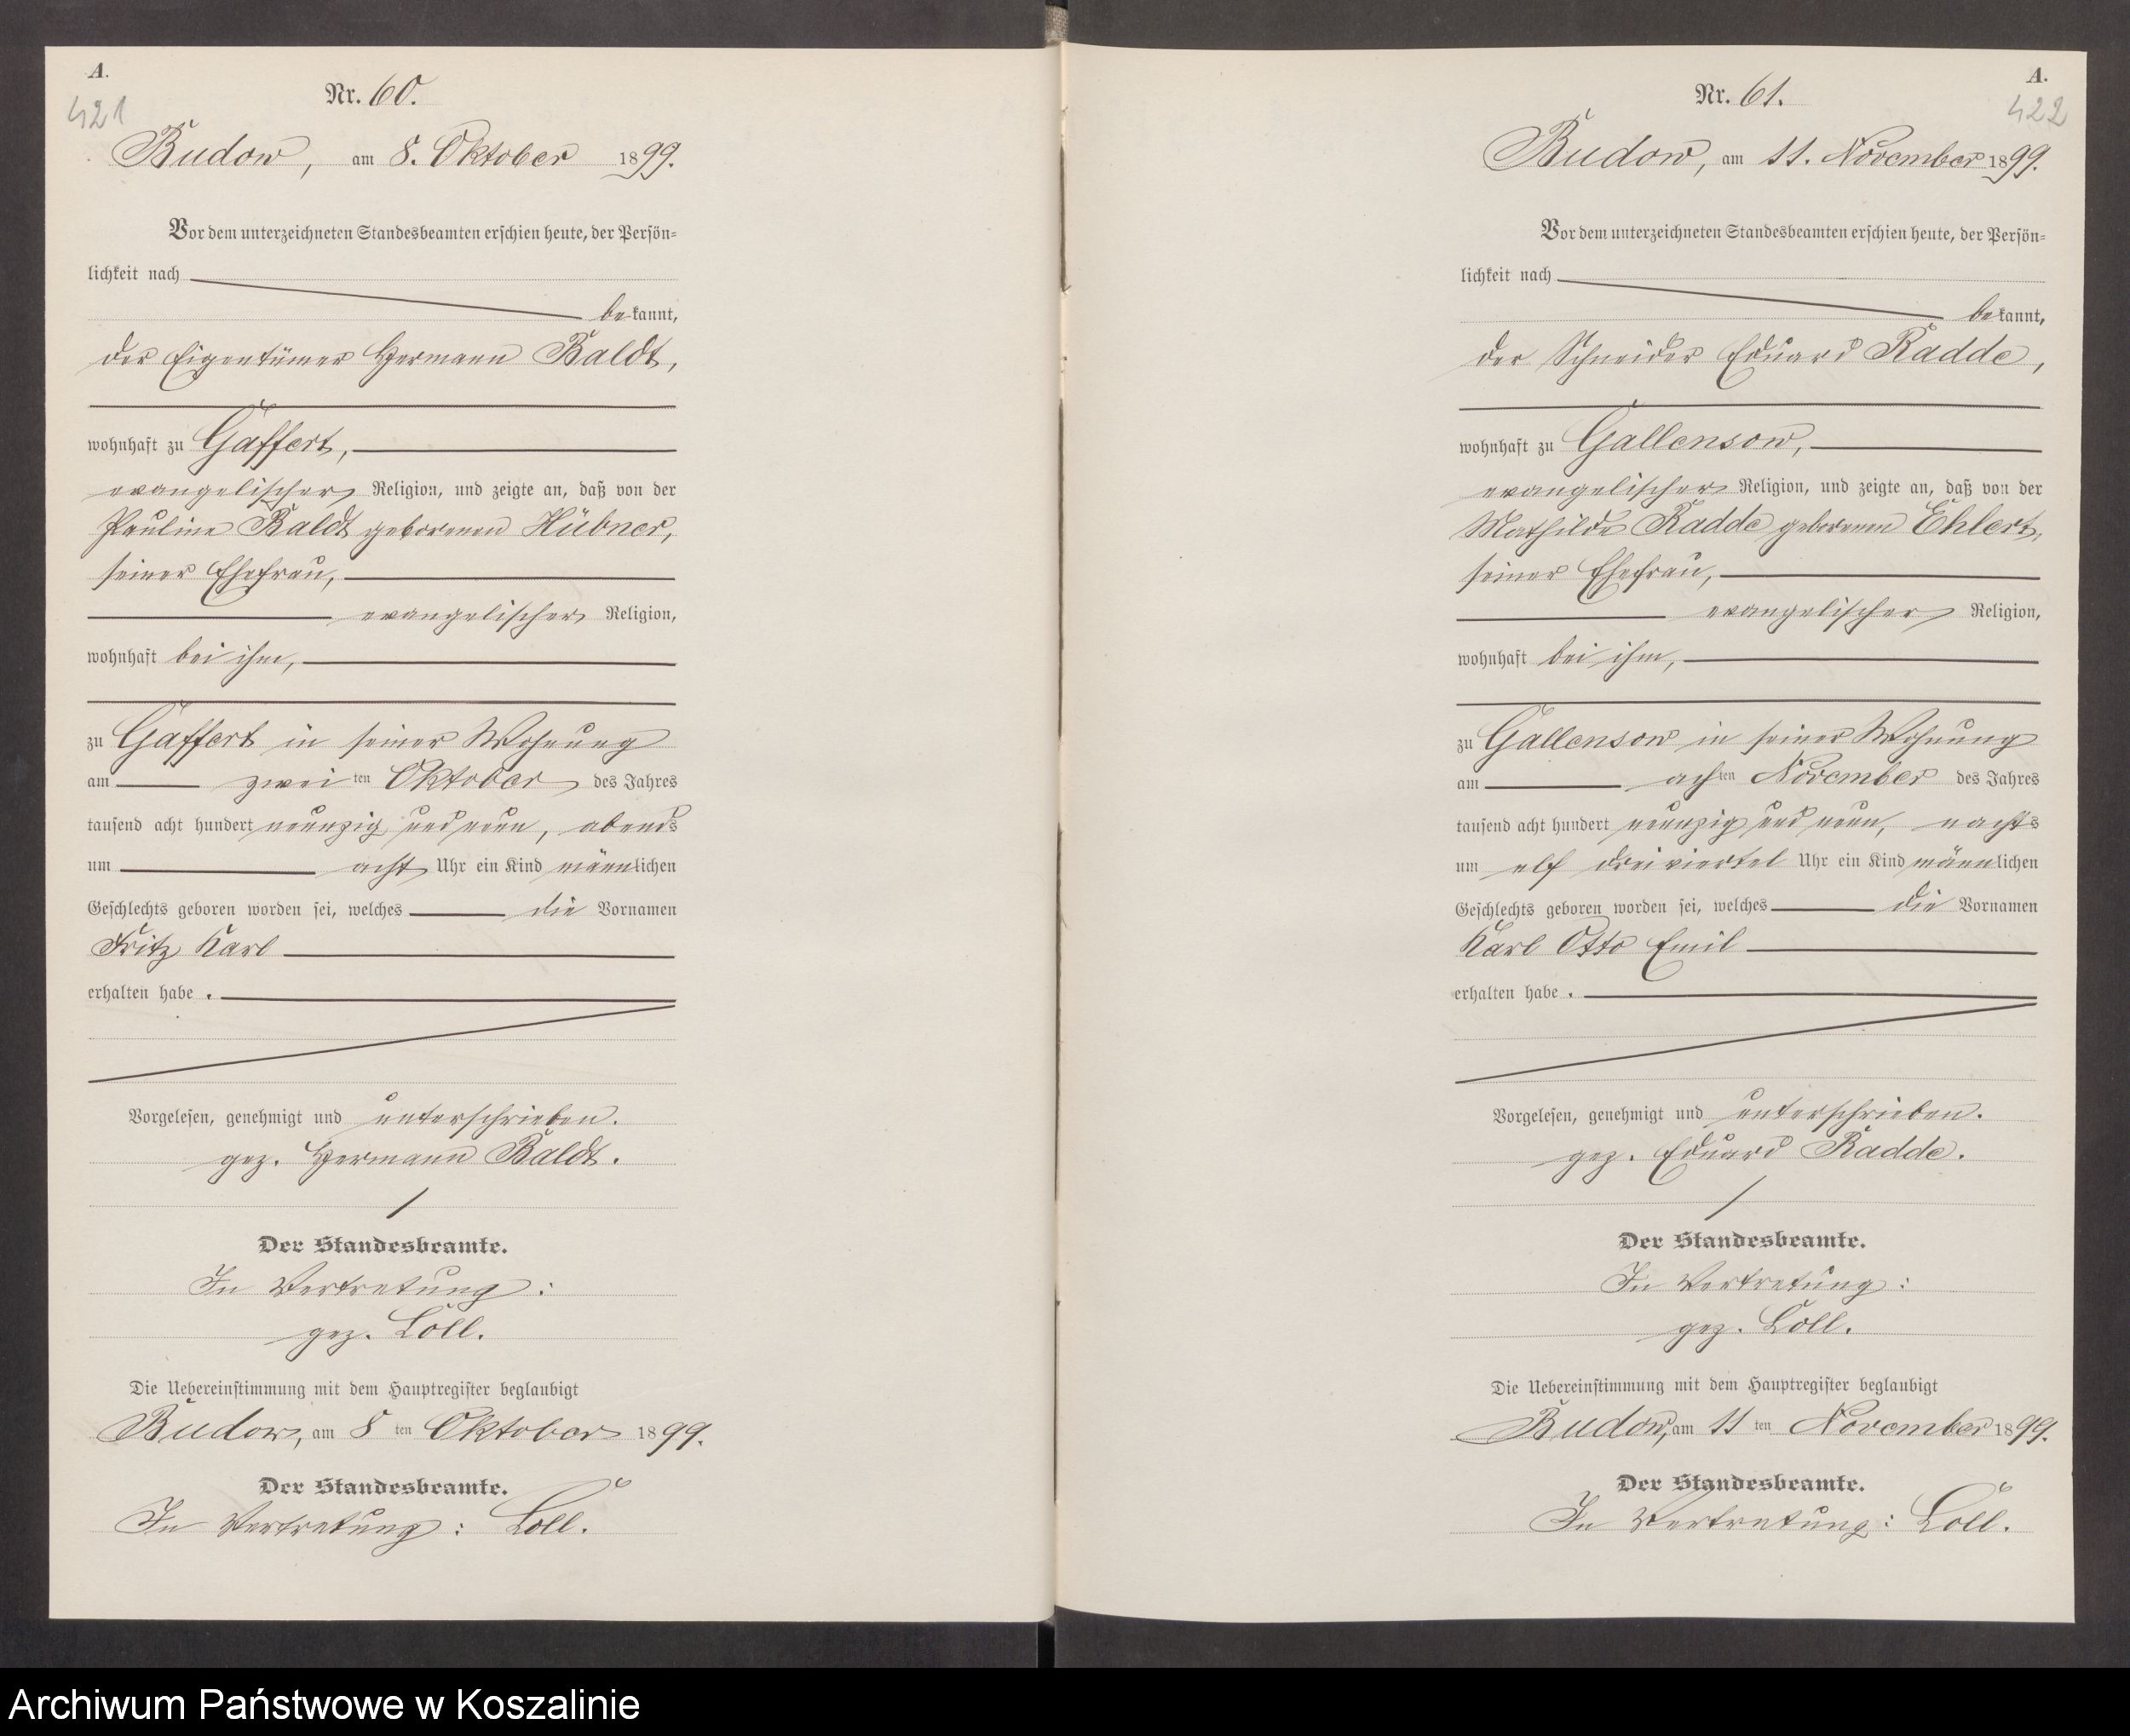 A.
421
Nr. 60.
Budow, am 8. Oktober 1899.
Vor dem unterzeichneten Standesbeamten erschien heute, der Persön-
lichkeit nach
bekannt,
der Eigentümer Hermann Baldt,
wohnhaft zu Gaffert,
evangelischer Religion, und zeigte an, daß von der
Pauline Baldt geborenen Hübner,
seiner Ehefrau,
evangelischer Religion,
wohnhaft bei ihm,
zu Gaffert in seiner Wohnung
am zweiten Oktober des Jahres
tausend acht hundert neunzig und neun, abends
um acht Uhr ein Kind männlichen
Geschlechts geboren worden sei, welches die Vornamen
Fritz Karl
erhalten habe.
Vorgelesen, genehmigt und unterschrieben.
gez. Hermann Baldt.
Der Standesbeamte.
In Vertretung:
gez. Löll.
Die Uebereinstimmung mit dem Hauptregister beglaubigt
Budow, am 8 ten Oktober 1899.
Der Standesbeamte.
In Vertretung: Löll.
A.
422
Nr. 61.
Budow, am 11. November 1899.
Vor dem unterzeichneten Standesbeamten erschien heute, der Persön-
lichkeit nach
bekannt,
der Schneider Eduard Radde,
wohnhaft zu Gallensow,
evangelischer Religion, und zeigte an, daß von der
Mathilde Radde geborenen Ehlert,
seiner Ehefrau,
evangelischer Religion,
wohnhaft bei ihm,
zu Gallensow in seiner Wohnung
am achten November des Jahres
tausend acht hundert neunzig und neun, nachts
um elf dreiviertel Uhr ein Kind männlichen
Geschlechts geboren worden sei, welches die Vornamen
Karl Otto Emil
erhalten habe.
Vorgelesen, genehmigt und unterschrieben.
gez. Eduard Radde.
Der Standesbeamte.
In Vertretung:
gez. Löll.
Die Uebereinstimmung mit dem Hauptregister beglaubigt
Budow, am 11 ten November 1899.
Der Standesbeamte.
In Vertretung: Löll.
Archiwum Państwowe w Koszalinie